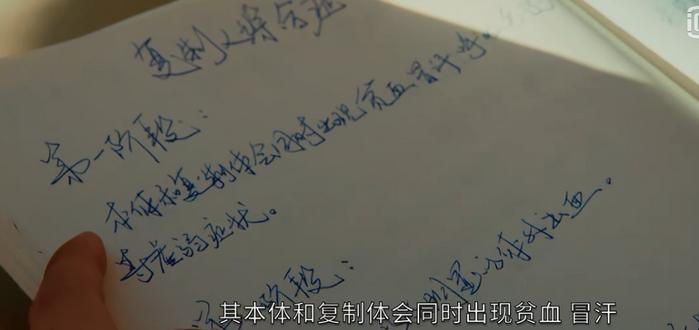 复制人将会
第一阶段：
本体和复制体会同时出现贫血冒汗呼
等虚弱症状。
阶段：
明显的体外出血。
其本体和复制体会同时出现贫血 冒汗